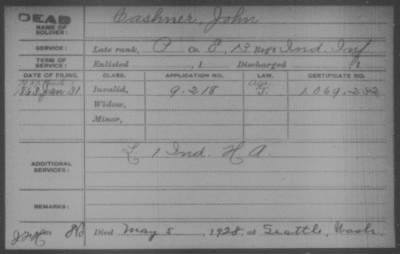 DEAD
NAME OF SOLDIER: Cashner, John
SERVICE: Late rank, P Co. E, 12 Reg't Ind. Inf
TERM OF SERVICE: Enlisted , 1 Discharged , 1
DATE OF FILING. CLASS. APPLICATION NO. LAW. CERTIFICATE NO.
1863 Jan 31 Invalid, 9.218 1.069.232
Widow,
Minor,
ADDITIONAL SERVICES: L 1 Ind. H A.
REMARKS:
Died May 5, 1928, at Seattle, Wash.